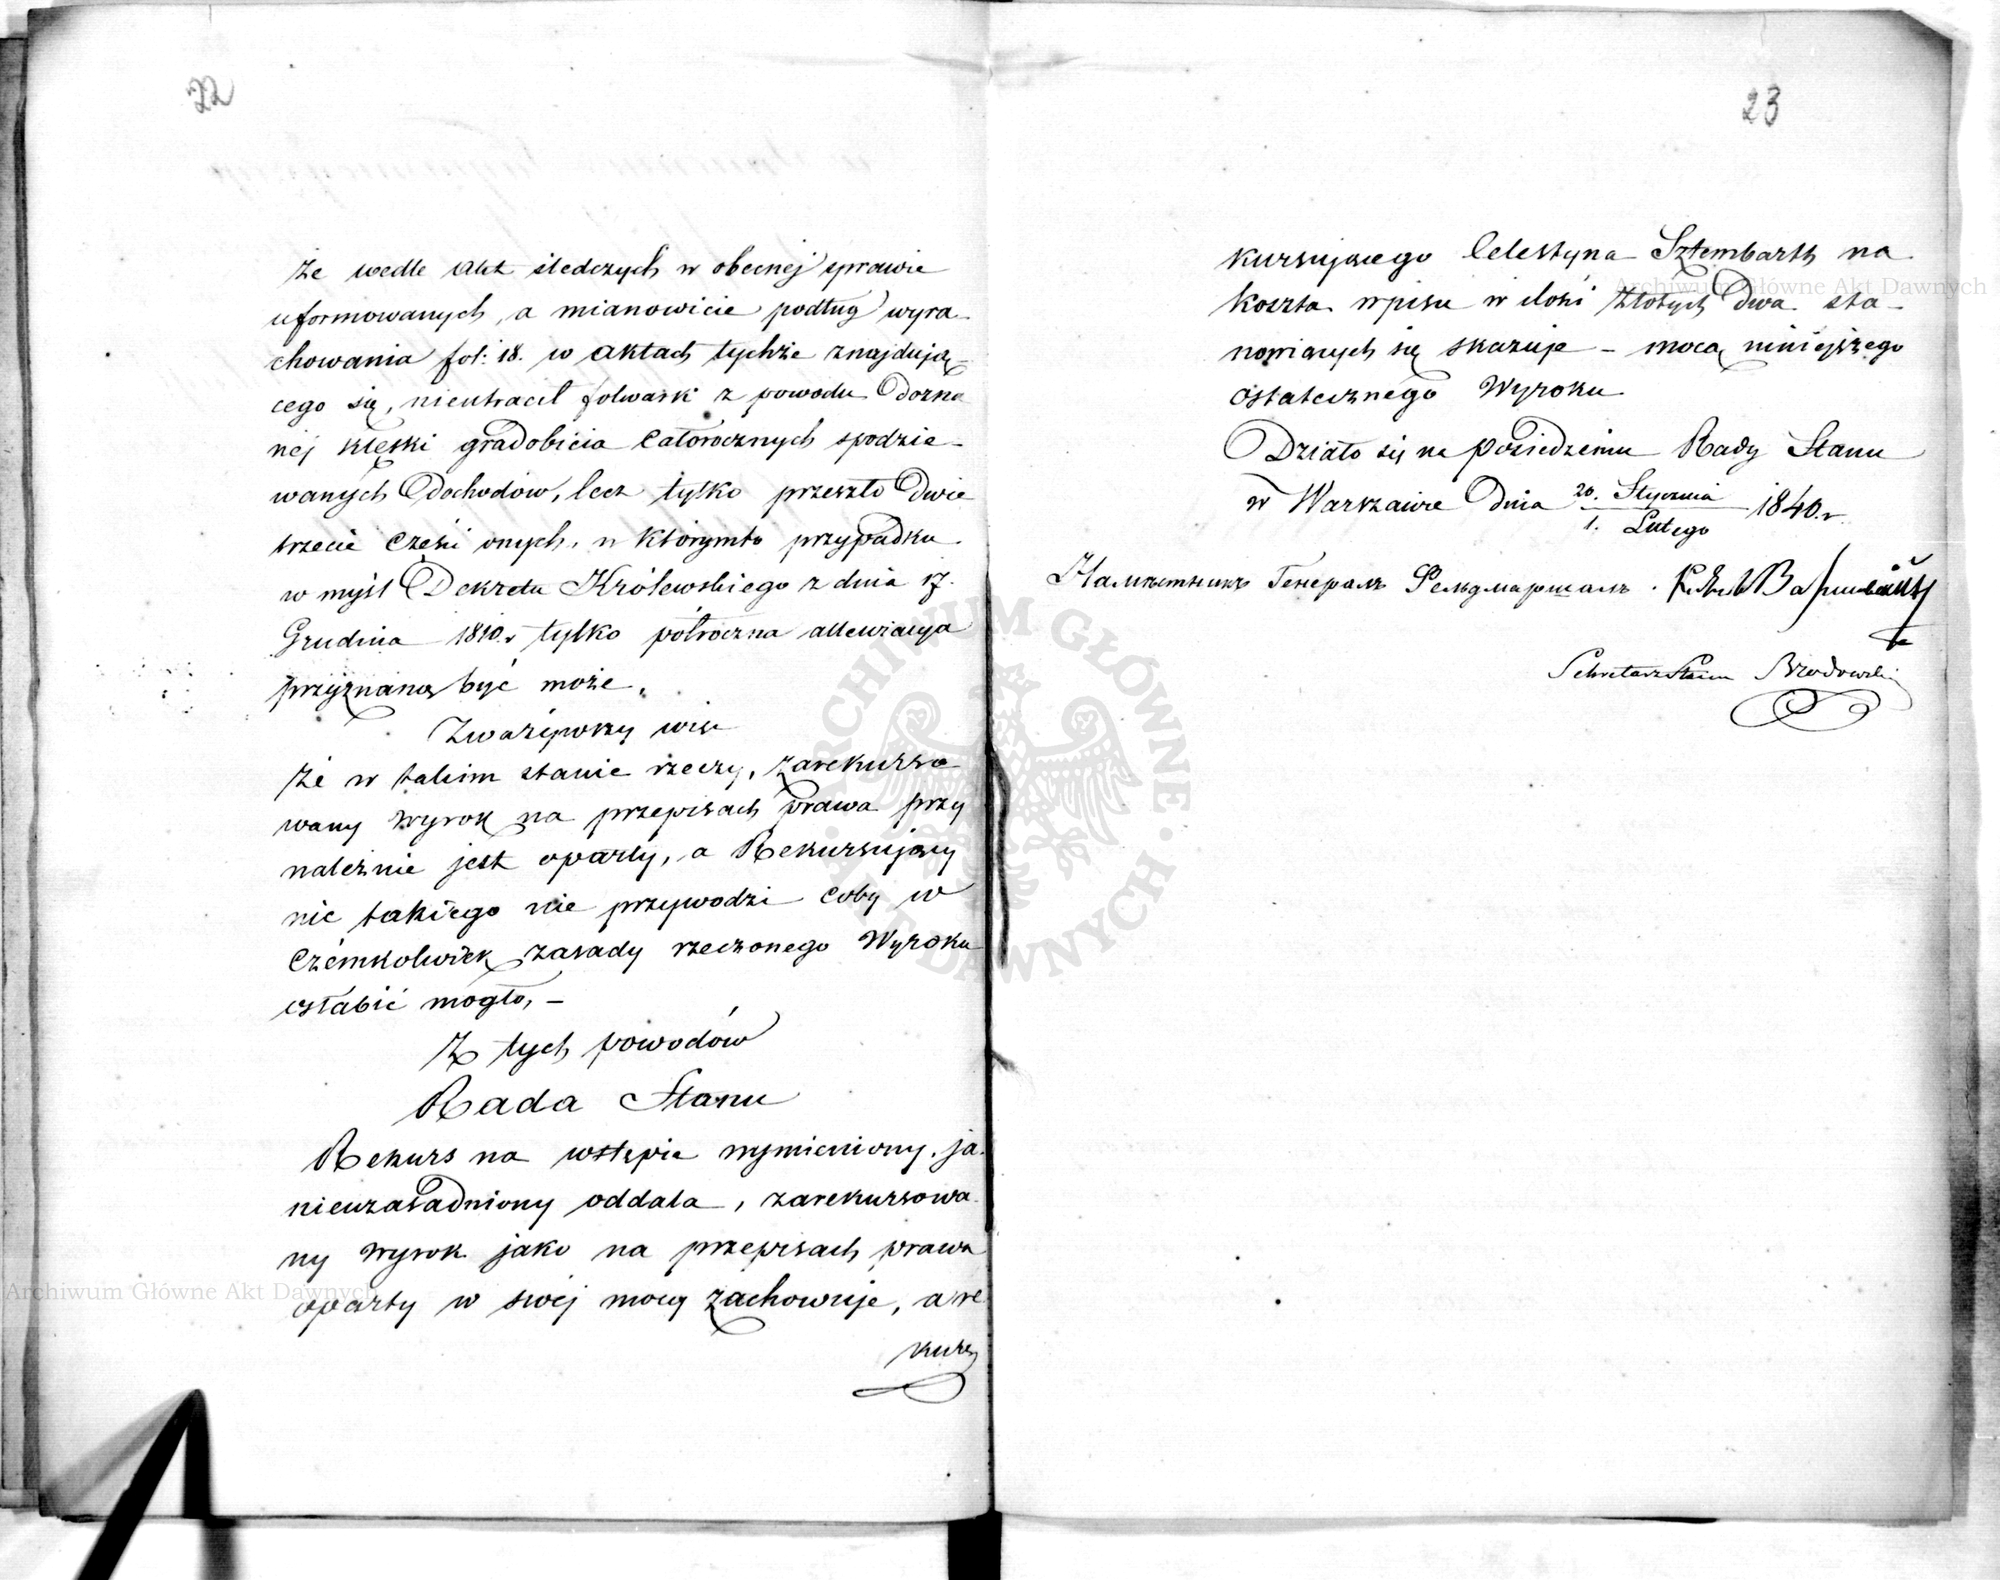 22
że wedle akt śledczych w obecnej sprawie
uformowanych, a mianowicie podług wyra-
chowania fol: 18. w aktach tychże znajdują-
cego się, nieutracił folwark z powodu dozna
nej klęski gradobicia całorocznych spodzie-
wanych dochodów, lecz tylko przeszło dwie
trzecie części onych, w którymto przypadku
w myśl Dekretu Królewskiego z dnia 17.
Grudnia 1810.r tylko półroczna allewiacya
przyznaną być może,
Zważywszy wresz
że w takim stanie rzeczy, zarekurso
wany wyrok na przepisach prawa przy
należnie jest oparty, a Rekursujący
nic takiego nie przywodzi coby w
czémkolwiek zasady rzeczonego Wyroku
osłabić mogło, –
Z tych powodów
Rada Stanu
Rekurs na wstępie wymieniony, ja.
nieuzasadniony oddala, zarekursowa-
ny wyrok jako na przepisach prawa
oparty w swéj mocy zachowuje, a re
kurs
23
kursującego Celestyna Sztembarth na
koszta wpisu w ilości złotych dwa sta-
nowiących się skazuje – mocą niniejszego
ostatecznego Wyroku
Działo się na posiedzeniu Rady Stanu
w Warszawie dnia 20. Stycznia / 1. Lutego 1840.r
Намѣстникъ Генералъ Фельдмаршалъ.
Sekretarz Stanu Brzozowski
Archiwum Główne Akt Dawnych
Archiwum Główne Akt Dawnych
ARCHIWUM GŁÓWNE AKT DAWNYCH